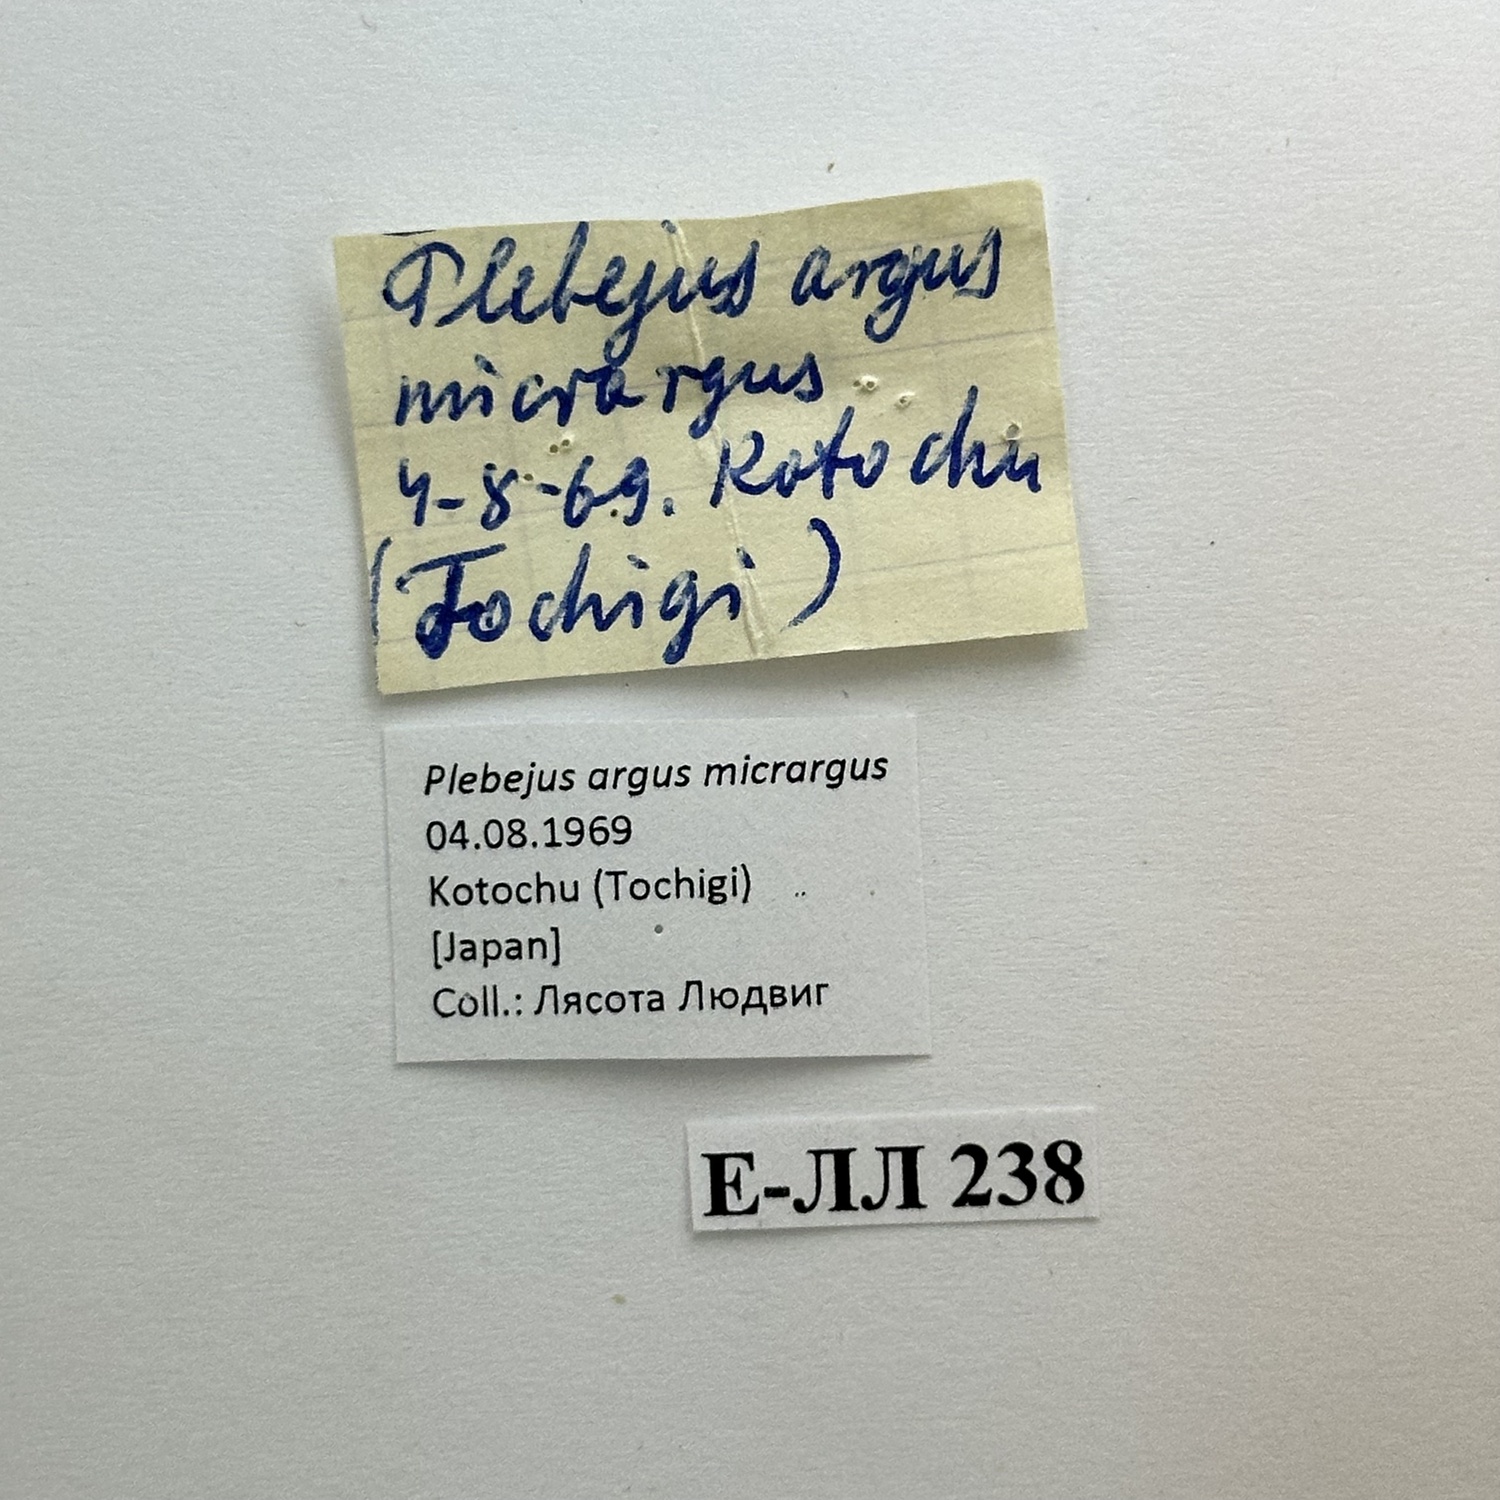 Plebejus argus
micrargus
4-8-69. Kotochu
(Tochigi)
Plebejus argus micrargus
04.08.1969
Kotochu (Tochigi)
[Japan]
Coll.: Лясота Людвиг
Е-ЛЛ 238